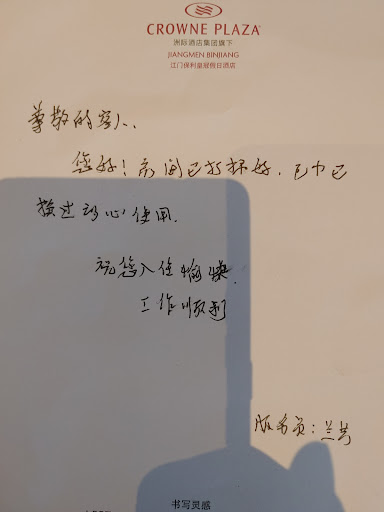 CROWNE PLAZA
洲际酒店集团旗下
JIANGMEN BINJIANG
江门保利皇冠假日酒店
尊敬的客人、
您好！房间已打扫好，已巾已
换过放心使用.
祝您入住愉快
工作顺利
服务员：兰
书写灵感